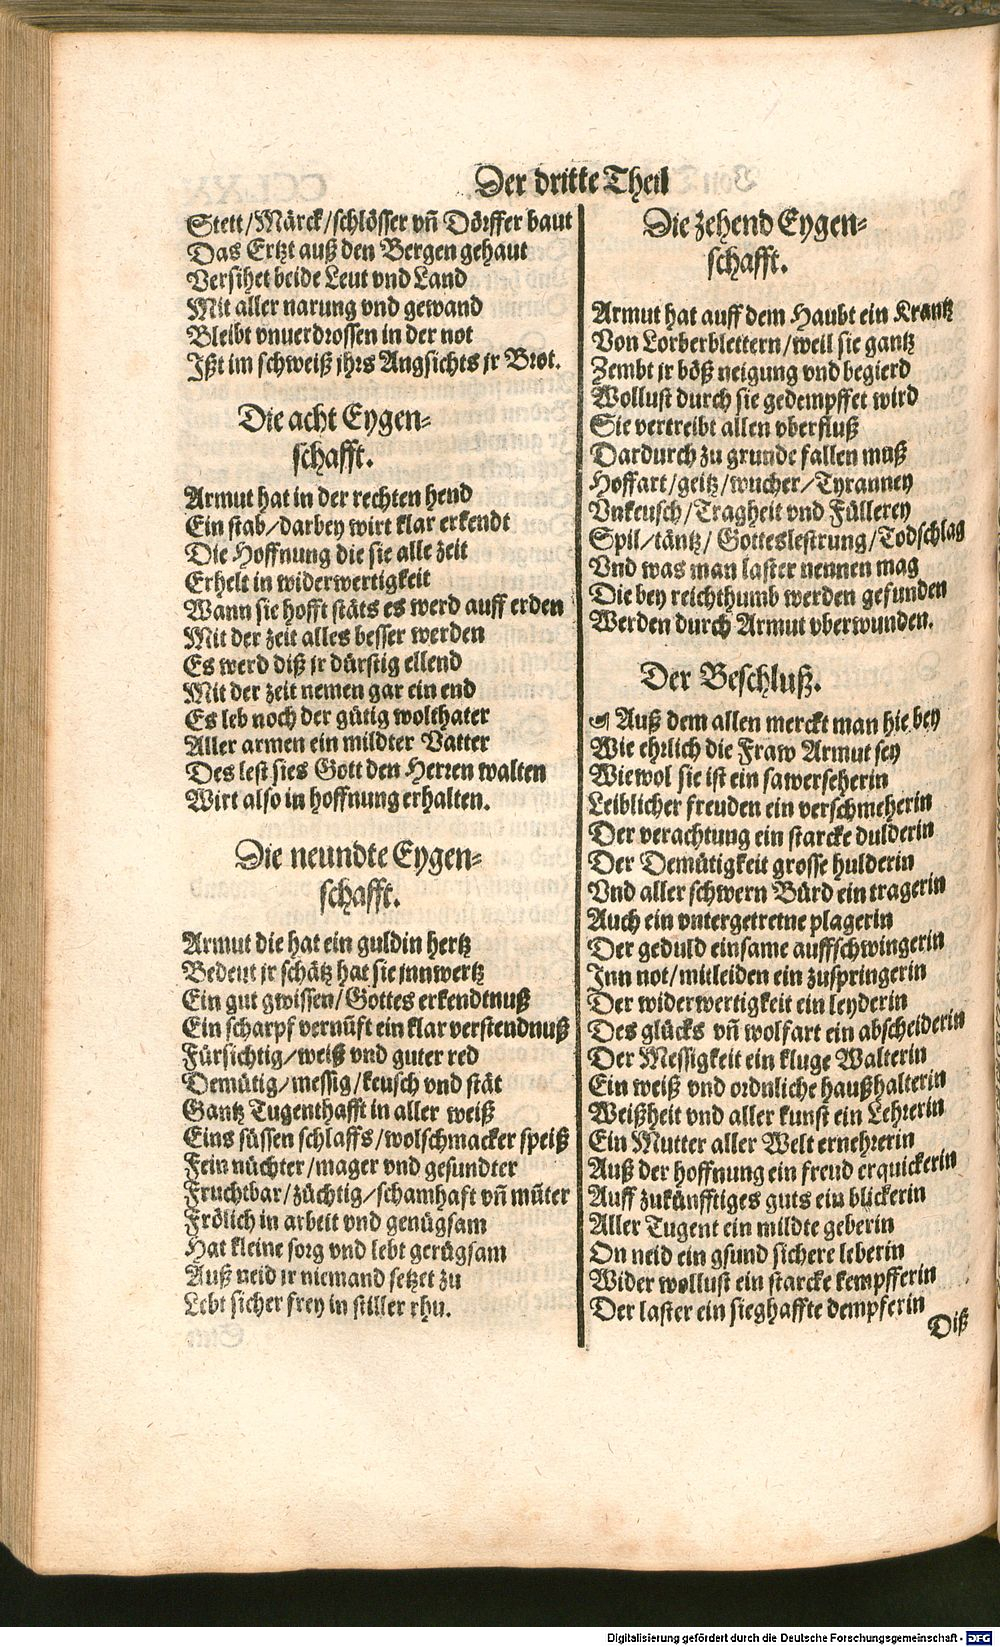 Der dritte Theil
Stett/Märck/schlösser vñ Dörffer baut
Das Ertzt auß den Bergen gehaut
Versihet beide Leut vnd Land
Mit aller narung vnd gewand
Bleibt vnuerdrossen in der not
Ißt im schweiß jhrs Angsichts jr Brot.
Die acht Eygen-
schafft.
Armut hat in der rechten hend
Ein stab/darbey wirt klar erkendt
Die Hoffnung die sie alle zeit
Erhelt in widerwertigkeit
Wann sie hofft stäts es werd auff erden
Mit der zeit alles besser werden
Es werd diß jr dürstig ellend
Mit der zeit nemen gar ein end
Es leb noch der gütig wolthater
Aller armen ein mildter Vatter
Des lest sies Gott den Herren walten
Wirt also in hoffnung erhalten.
Die neundte Eygen-
schafft.
Armut die hat ein guldin hertz
Bedeut jr schätz hat sie jnnwertz
Ein gut gwissen/Gottes erkendtnuß
Ein scharpf vernũft ein klar verstendnuß
Fürsichtig/weiß vnd guter red
Demütig/messig/keusch vnd stät
Gantz Tugenthafft in aller weiß
Eins süssen schlaffs/wolschmacker speiß
Fein nüchter/mager vnd gesundter
Fruchtbar/züchtig/schamhaft vñ mũter
Frölich in arbeit vnd genügsam
Hat kleine sorg vnd lebt gerügsam
Auß neid jr niemand setzet zu
Lebt sicher frey in stiller rhu.
Die zehend Eygen-
schafft.
Armut hat auff dem Haubt ein Krantz
Von Lorberblettern/weil sie gantz
Zembt jr böß neigung vnd begierd
Wollust durch sie gedempffet wird
Sie vertreibt allen vberfluß
Dardurch zu grunde fallen muß
Hoffart/geitz/wucher/Tyranney
Vnkeusch/Tragheit vnd Füllerey
Spil/täntz/Gotteslestrung/Todschlag
Vnd was man laster nennen mag
Die bey reichthumb werden gefunden
Werden durch Armut vberwunden.
Der Beschluß.
Auß dem allen merckt man hie bey
Wie ehrlich die Fraw Armut sey
Wiewol sie ist ein sawerseherin
Leiblicher freuden ein verschmeherin
Der verachtung ein starcke dulderin
Der Demütigkeit grosse hulderin
Vnd aller schwern Bürd ein tragerin
Auch ein vntergetretne plagerin
Der geduld einsame auffschwingerin
Inn not/mitleiden ein zuspringerin
Der widerwertigkeit ein leyderin
Des glücks vñ wolfart ein abscheiderin
Der Messigkeit ein kluge Walterin
Ein weiß vnd ordnliche haußhalterin
Weißheit vnd aller kunst ein Lehrerin
Ein Mutter aller Welt ernehrerin
Auß der hoffnung ein freud erquickerin
Auff zukünfftiges guts ein blickerin
Aller Tugent ein mildte geberin
On neid ein gsund sichere leberin
Wider wollust ein starcke kempfferin
Der laster ein sieghaffte dempferin
Diß
Digitalisierung gefördert durch die Deutsche Forschungsgemeinschaft - DFG